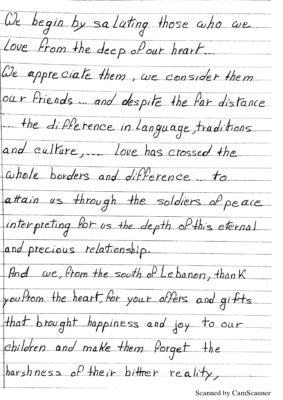 We begin by saluting those who we
love from the deep of our heart...
We appreciate them, we consider them
our friends... and despite the far distance
... the difference in language, traditions
and culture,.... love has crossed the
whole borders and difference... to
attain us through the soldiers of peace
interpreting for us the depth of this eternal
and precious relationship.
And we, from the south of Lebanon, thank
you from the heart, for your offers and gifts
that brought happiness and joy to our
children and make them forget the
harshness of their bitter reality,
Scanned by CamScanner